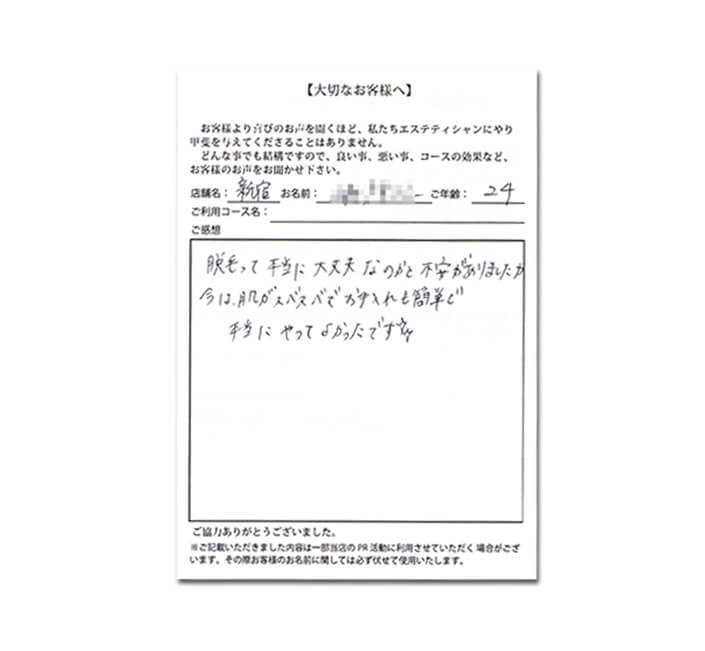 【大切なお客様へ】
お客様より喜びのお声を聞くほど、私たちエステティシャンにやり
甲斐を与えてくださることはありません。
どんな事でも結構ですので、良い事、悪い事、コースの効果など、
お客様のお声をお聞かせ下さい。
店舗名：新宿 お名前： ご年齢：24
ご利用コース名：
ご感想
脱毛って本当に大丈夫なのかと不安がありましたが
今は、肌がスベスベでお手入れも簡単で
本当にやってよかったです☆
ご協力ありがとうございました。
※ご記載いただきました内容は一部当店のPR活動に利用させていただく場合がござ
います。その際お客様のお名前に関しては必ず伏せて使用いたします。